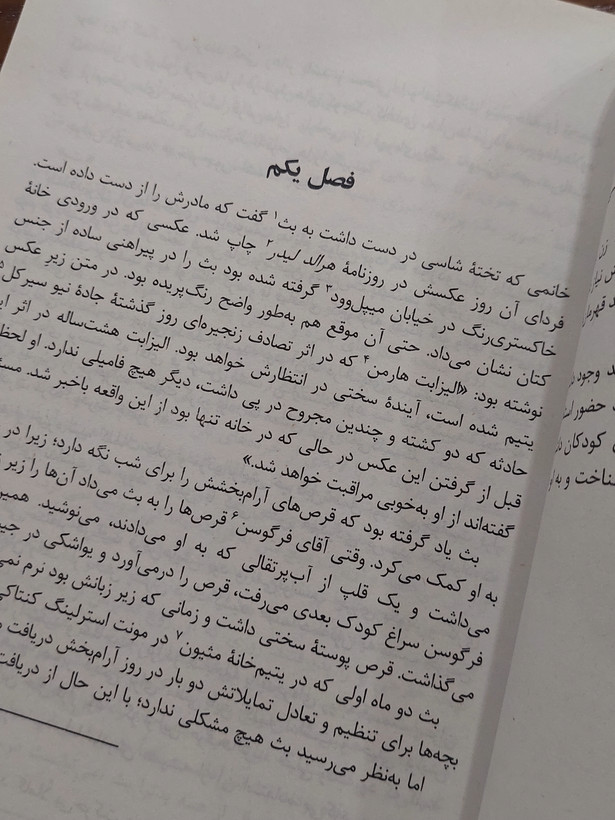 فصل یکم
خانمی که تختهٔ شاسی در دست داشت به بث۱ گفت که مادرش را از دست داده است.
فردای آن روز عکسش در روزنامهٔ هرالد لیدر۲ چاپ شد. عکسی که در ورودی خانهٔ
خاکستری‌رنگ در خیابان میپل‌وود۳ گرفته شده بود بث را در پیراهنی ساده از جنس
کتان نشان می‌داد. حتی آن موقع هم به‌طور واضح رنگ‌پریده بود. در متن زیرِ عکس
نوشته بود: «الیزابت هارمن۴ که در اثر تصادف زنجیره‌ای روز گذشتهٔ جادهٔ نیو سیرکل۵
یتیم شده است، آیندهٔ سختی در انتظارش خواهد بود. الیزابت هشت‌ساله در اثر
حادثه که دو کشته و چندین مجروح در پی داشت، دیگر هیچ فامیلی ندارد. او
قبل از گرفتن این عکس در حالی که در خانه تنها بود از این واقعه باخبر شد.
گفته‌اند از او به‌خوبی مراقبت خواهد شد.»
بث یاد گرفته بود که قرص‌های آرام‌بخشش را برای شب نگه دارد؛ زیرا در
به او کمک می‌کرد. وقتی آقای فرگوسن۶ قرص‌ها را به بث می‌داد آن‌ها را زیر
می‌داشت و یک قلپ از آب‌پرتقالی که به او می‌دادند، می‌نوشید.
فرگوسن سراغ کودک بعدی می‌رفت، قرص را درمی‌آورد و یواشکی در
می‌گذاشت. قرص پوستهٔ سختی داشت و زمانی که زیر زبانش بود نرم
بث دو ماه اولی که در یتیم‌خانهٔ مثیون۷ در مونت استرلینگ
بچه‌ها برای تنظیم و تعادل تمایلاتش دو بار در روز آرام‌بخش دریافت
اما به‌نظر می‌رسید بث هیچ مشکلی ندارد؛ با این حال از
وجود
حضور
کودکان
شناخت و به